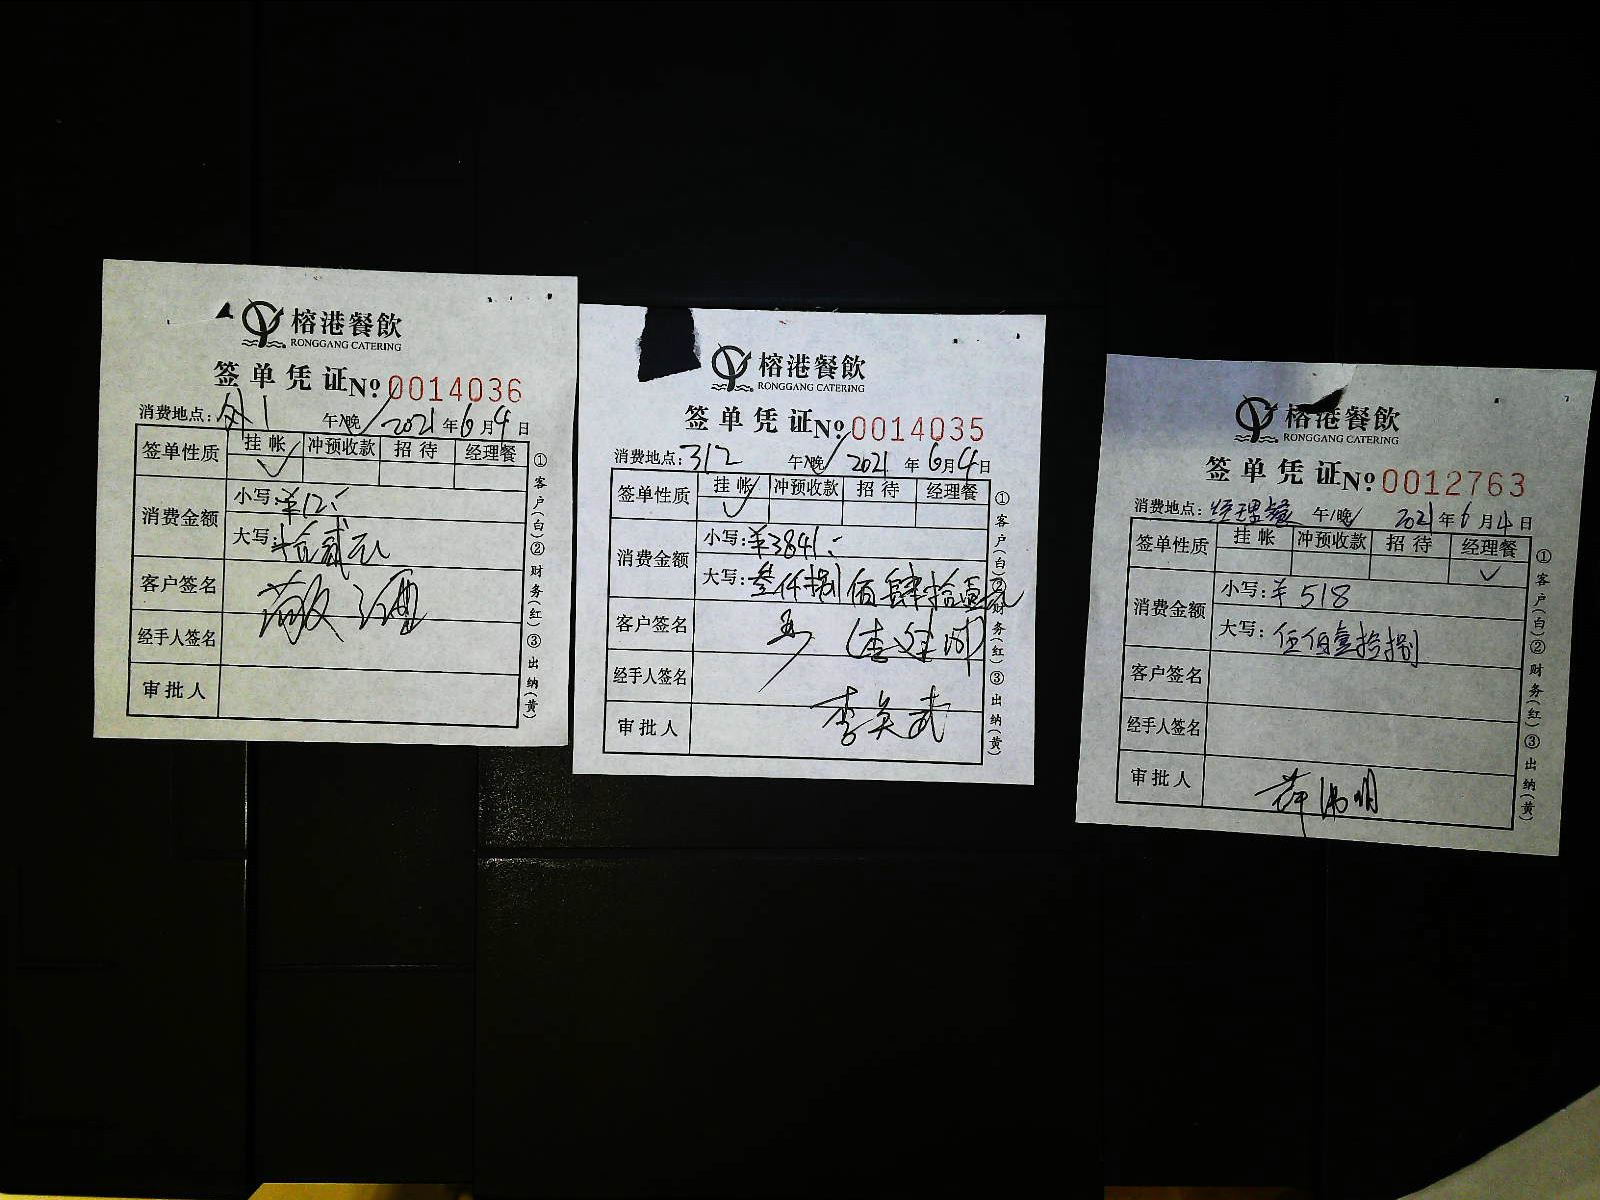 榕港餐飲
RONGGANG CATERING
签单凭证 No 0014036
消费地点: 外1 午/晚 2021年6月4日
签单性质 挂帐 冲预收款 招待 经理餐
消费金额
小写: ¥12:
大写: 拾贰元
客户签名
经手人签名
审批人
①客户(白)②财务(红)③出纳(黄)
榕港餐飲
RONGGANG CATERING
签单凭证 No 0014035
消费地点: 312 午/晚 2021年6月4日
签单性质 挂帐 冲预收款 招待 经理餐
消费金额
小写: ¥3841:
大写: 叁仟捌佰肆拾壹元
客户签名
经手人签名
审批人 李关武
①客户(白)②财务(红)③出纳(黄)
榕港餐飲
RONGGANG CATERING
签单凭证 No 0012763
消费地点: 经理餐 午/晚 2021年6月4日
签单性质 挂帐 冲预收款 招待 经理餐
消费金额
小写: ¥518
大写: 伍佰壹拾捌
客户签名
经手人签名
审批人
①客户(白)②财务(红)③出纳(黄)